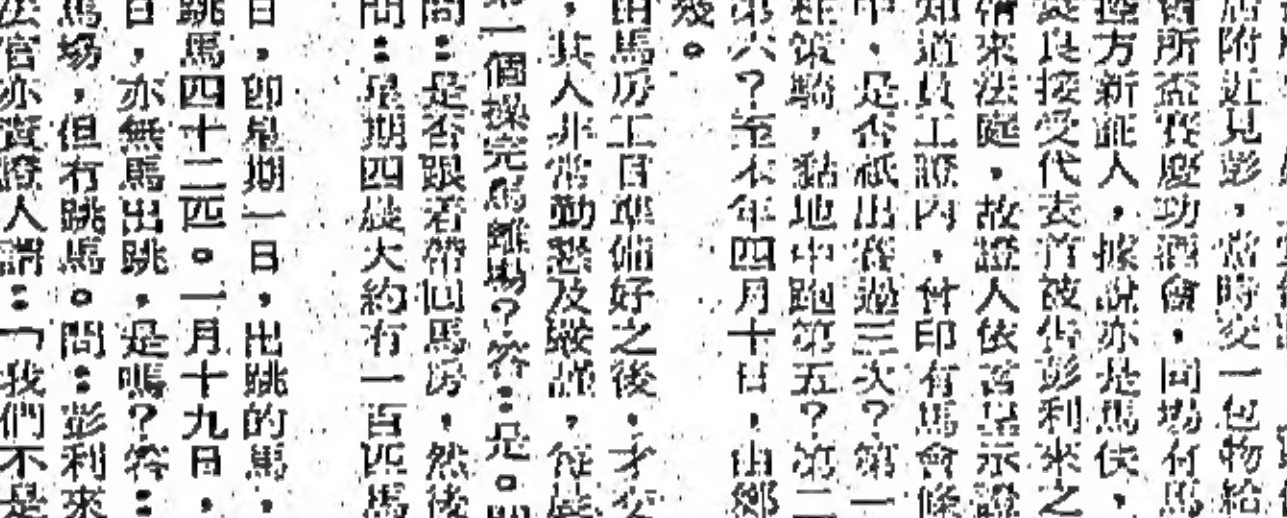 居附近見彭，當時交一包物給
會所盃賽慶功酒會，同場有馬
控方新証人，據說亦是馬伕，
袁良接受代表首被告彭利來之
精來法庭，故證人依言呈示證
知道員工證內，付印有馬會條
中，是否祇出賽過三次？第一
在策騎，黏地中跑第五？第二
第六？至本年四月十日，由鄉
幾。
由馬房工目準備好之後，才交
，其人非常勤懇及嚴謹，每晨
第一個操完馬離場？答：是。問
問：是否跟着帶回馬房，然後
問：星期四晨大約有一百匹馬
日，即星期一日，出跳的馬，
跳馬四十二匹。一月十九日，
日，亦無馬出跳，是嗎？答：
馬場，但冇跳馬。問：彭利來
法官亦資證人謂：「我們不是